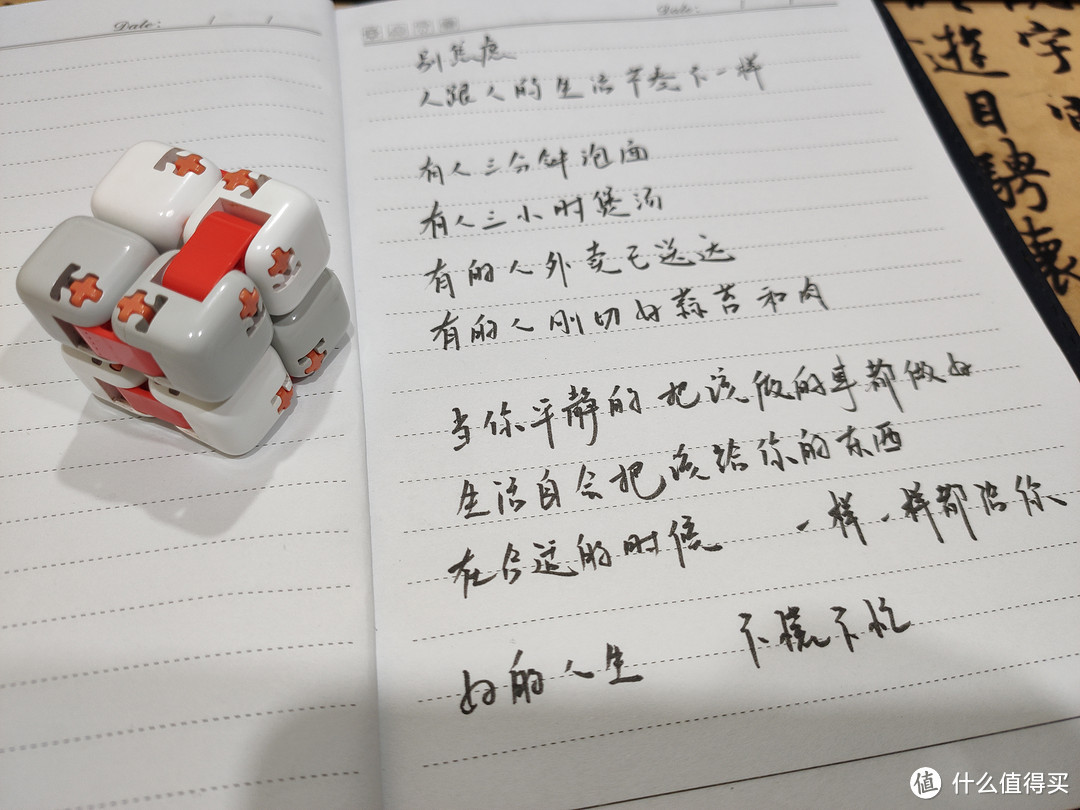 Date: / /
Date: / /
别焦虑
人跟人的生活节奏不一样
有人三分钟泡面
有人三小时煲汤
有的人外卖已送达
有的人刚切好蒜苔和肉
当你平静的把该做的事都做好
生活自会把该给你的东西
在合适的时候 一样一样都给你
好的人生 不慌不忙
遊目騁懷
字
值 什么值得买